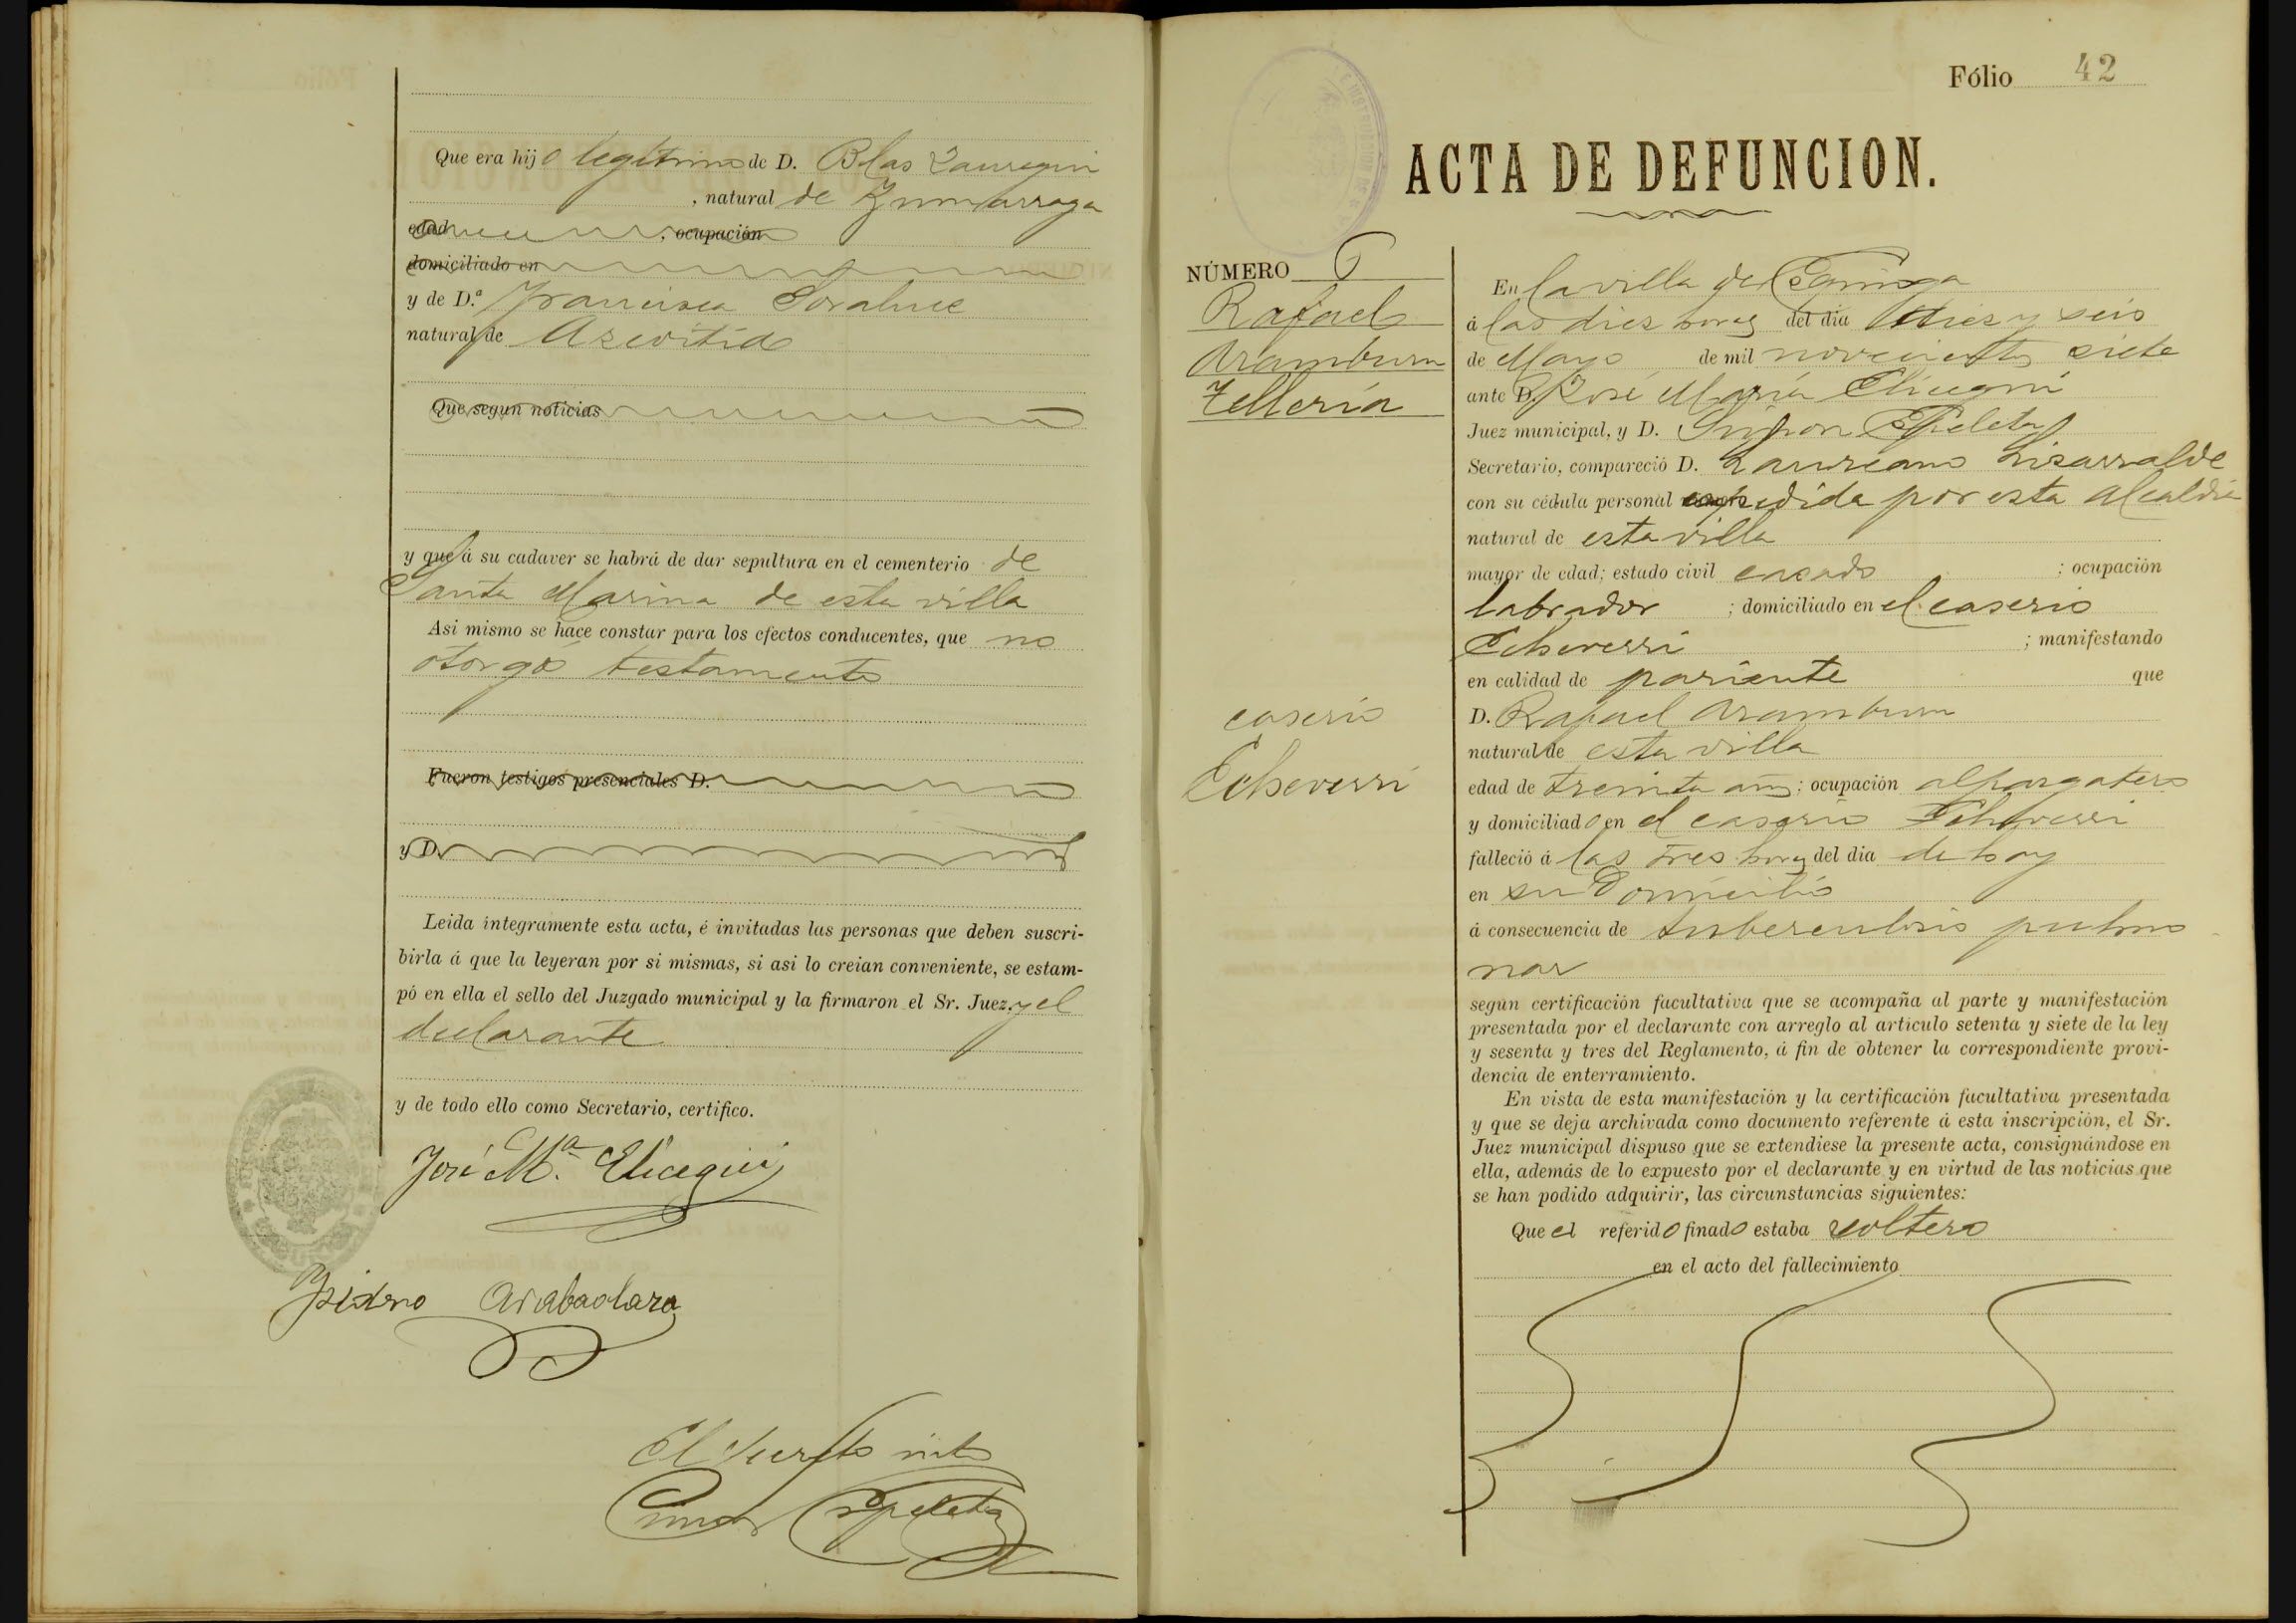 Que era hijo legítimo de D. Blas Zauregui
, natural de Zumarraga
edad , ocupación
domiciliado en
y de D.ª Francisca Soraluce
natural de Azcoitia
Que segun noticias
y que á su cadaver se habrá de dar sepultura en el cementerio de
Santa Marina de esta villa
Asi mismo se hace constar para los efectos conducentes, que no
otorgó testamento
Fueron testigos presenciales D.
y D.
Leida íntegramente esta acta, é invitadas las personas que deben suscri-
birla á que la leyeran por si mismas, si asi lo creian conveniente, se estam-
pó en ella el sello del Juzgado municipal y la firmaron el Sr. Juez, y el
declarante
y de todo ello como Secretario, certifico.
José M.ª Elicegui
Ysidro Arabaolaza
El Secreto into
Simon Ezpeleta
Fólio 42
ACTA DE DEFUNCION.
NÚMERO 6
Rafael
Aramburu
Telleria
caserio
Echeverri
En la villa de
á las diez horas del dia diez y seis
de Mayo de mil novecientos siete
ante D. José María Elicegui
Juez municipal, y D. Simon Ezpeleta
Secretario, compareció D. Laureano Lizarralde
con su cédula personal expedida por esta Alcaldia
natural de esta villa
mayor de edad; estado civil casado ; ocupación
labrador ; domiciliado en el caserio
Echeverri ; manifestando
en calidad de pariente que
D. Rafael Aramburu
natural de esta villa
edad de treinta años; ocupación alpargatero
y domiciliado en el caserio Echeverri
falleció á las tres horas del dia de hoy
en su domicilio
á consecuencia de tuberculosis pulmo
nar
según certificación facultativa que se acompaña al parte y manifestación
presentada por el declarante con arreglo al artículo setenta y siete de la ley
y sesenta y tres del Reglamento, á fin de obtener la correspondiente provi-
dencia de enterramiento.
En vista de esta manifestación y la certificación facultativa presentada
y que se deja archivada como documento referente á esta inscripción, el Sr.
Juez municipal dispuso que se extendiese la presente acta, consignándose en
ella, además de lo expuesto por el declarante y en virtud de las noticias que
se han podido adquirir, las circunstancias siguientes:
Que el referido finado estaba soltero
en el acto del fallecimiento